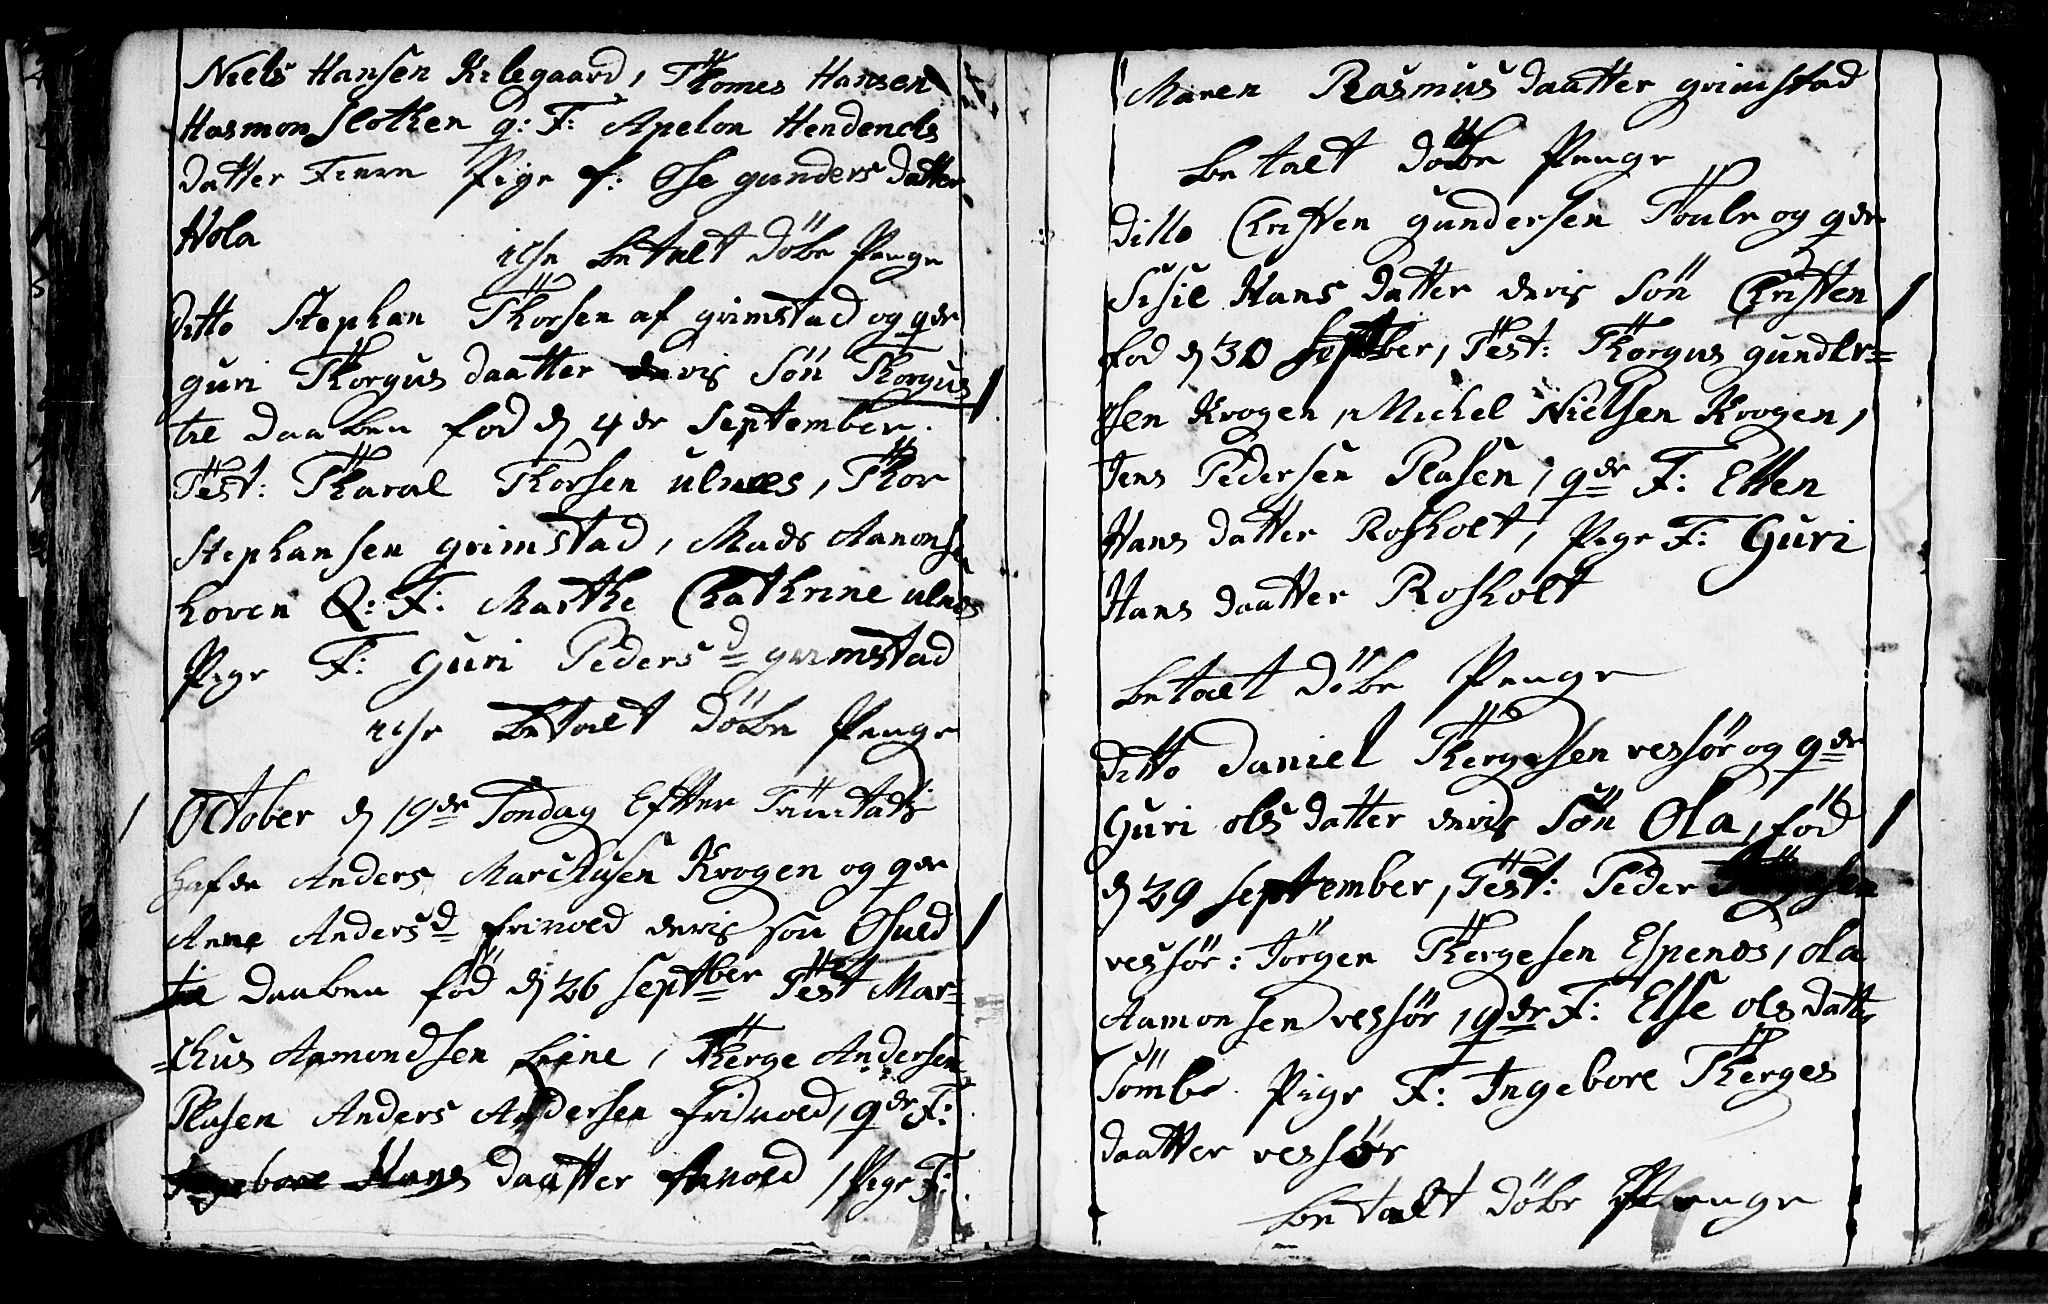 Niels Hansen Kilegaard, Thomes Hansen
Hasmon Slothen q: F: Apelon Hendenels
datter Fiere Pige f: Ose gunders datter
Hola
iche betalt döbe Penge
ditto Stephan Thorsen af grimstad og qde
guri Thorgus daatter devis Sön Thorgus
til daaben fød d 4de September.
Test: Tharal Thorsen ulnes, Thor
Stephansen grimstad, Mads Aanonse
hoven Q: F: Marthe Chathrine ulnes
Pige F: Guri Peders d grimstad
iche betalt döbe Penge
October d 19de Söndag Efter Trinitatis
hafde Anders Marchusen Krogen og qde
Anne Anders d frivold devis søn Osuld
til daaben föd d 26 Septber Test Mar=
=chus Aamondsen Liene, Therge Andersen
Plasen Anders Andersen Frivold, qde F:
Ingebore Hans daatter , Pige F:
Maren Rasmus daatter grimstad
betalt döbe Penge
ditto Christen gundersen Toule og qde
Sisil Hans datter devis Sön Christen
fod d 30 Septber, Test: Thorgus gunder=
sen Krogen, Michel Nielsen Krogen,
Jens Pedersen Plasen, qde F: Ellen
Hans datter Rosholt, Pige F: Guri
Hans daatter Rosholt
betalt döbe Penge
ditto Daniel Thergesen vessör og qde
Guri ols datter devis Sön Ola, föd
d 29 September, Test: Peder Thergesen
vessör: Jörgen Thergesen Espenes, ola
Aamonsen vessör, qde F: Else ols datt
Sömbe Pige F: Ingebore Therges
daatter vessör
betalt döbe Penge